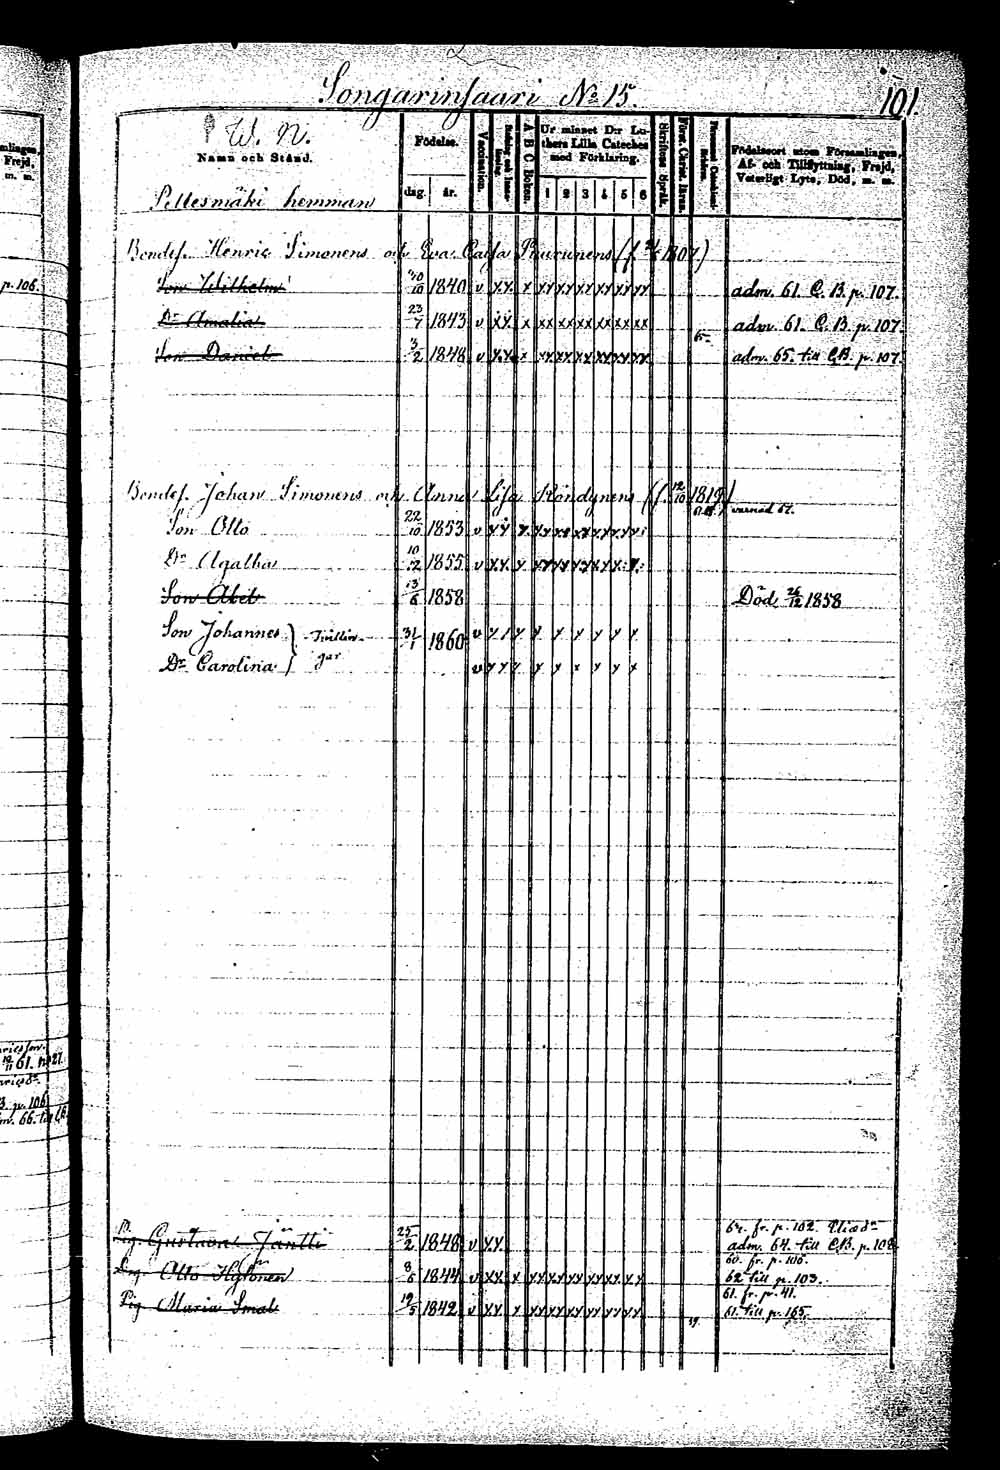 Songarinsaari No 15.
101.
W. N.
Namn och Stånd.
Födelse.
dag. år.
Vaccination.
A B C Boken.
Ur minnet Dr Lu-
thers Lilla Cateches
med Förklaring.
1 2 3 4 5 6
Skriftens Språk.
Födelseort utom Församlingen,
Af- och Tillflyttning, Frejd,
Veterligt Lyte, Död, m. m.
Pellesmäki hemman
Bondes. Henric Simonens och Eva Caisa Ruununens 1807)
Son Wilhelm 30/10 1840 v xx x xx xx xx xx xx xx adm. 61. C. B. p. 107.
Dr Amalia 23/7 1843 v xx x xx xx xx xx xx xx adm. 61. C. B. p. 107.
Son Daniel 3/2 1848 v xx x xx xx xx xx xx xx adm. 65. till C.B. p. 107.
Bondes. Johan Simonens och Anna Lisa Köndynens (f. 12/10 1819)
varnad 67.
Son Otto 22/10 1853
Dr Agatha 10/12 1855
Son Abel 13/6 1858 Död 26/12 1858
Son Johannes } Tvillin- 31/1 1860
Dr Carolina } gar
p. 106.
Pig. Gustava Jäntti 25/2 1848 v xx
64. fr. p. 102.
adm. 64. till C.B. p. 108
60. fr. p. 106.
Drg. Otto Hyfönen 8/6 1844 62 till p. 103.
61. fr. p. 41.
Pig Maria Smal 19/5 1842 61. till p. 165.